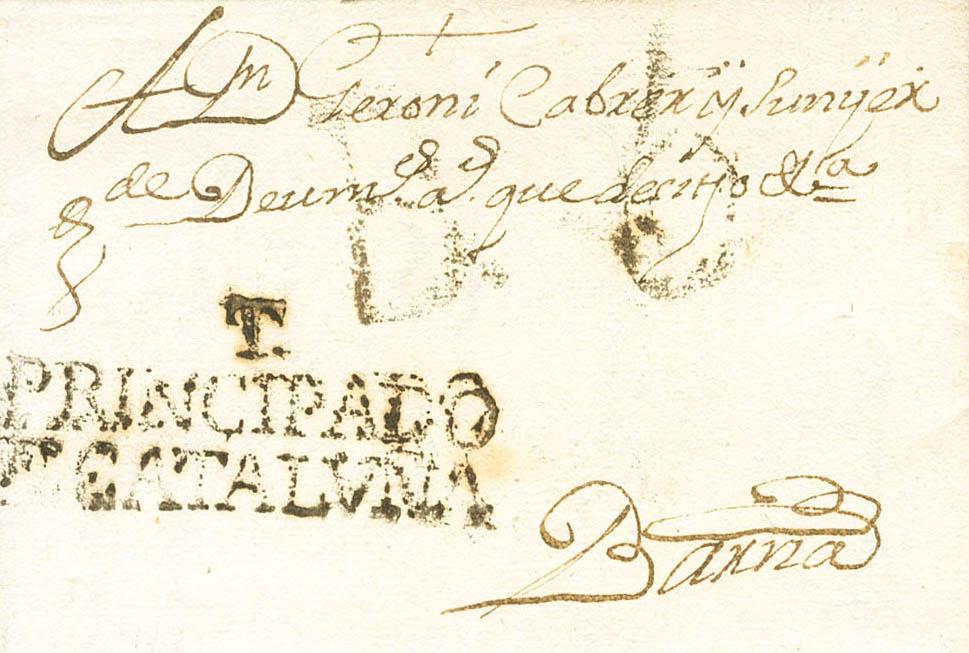 A Dn Geroni Cabrer y Sunyer
de Deu m.s a.s que desitjo &.a
T.
PRINCIPADO
CATALUÑA
Barna